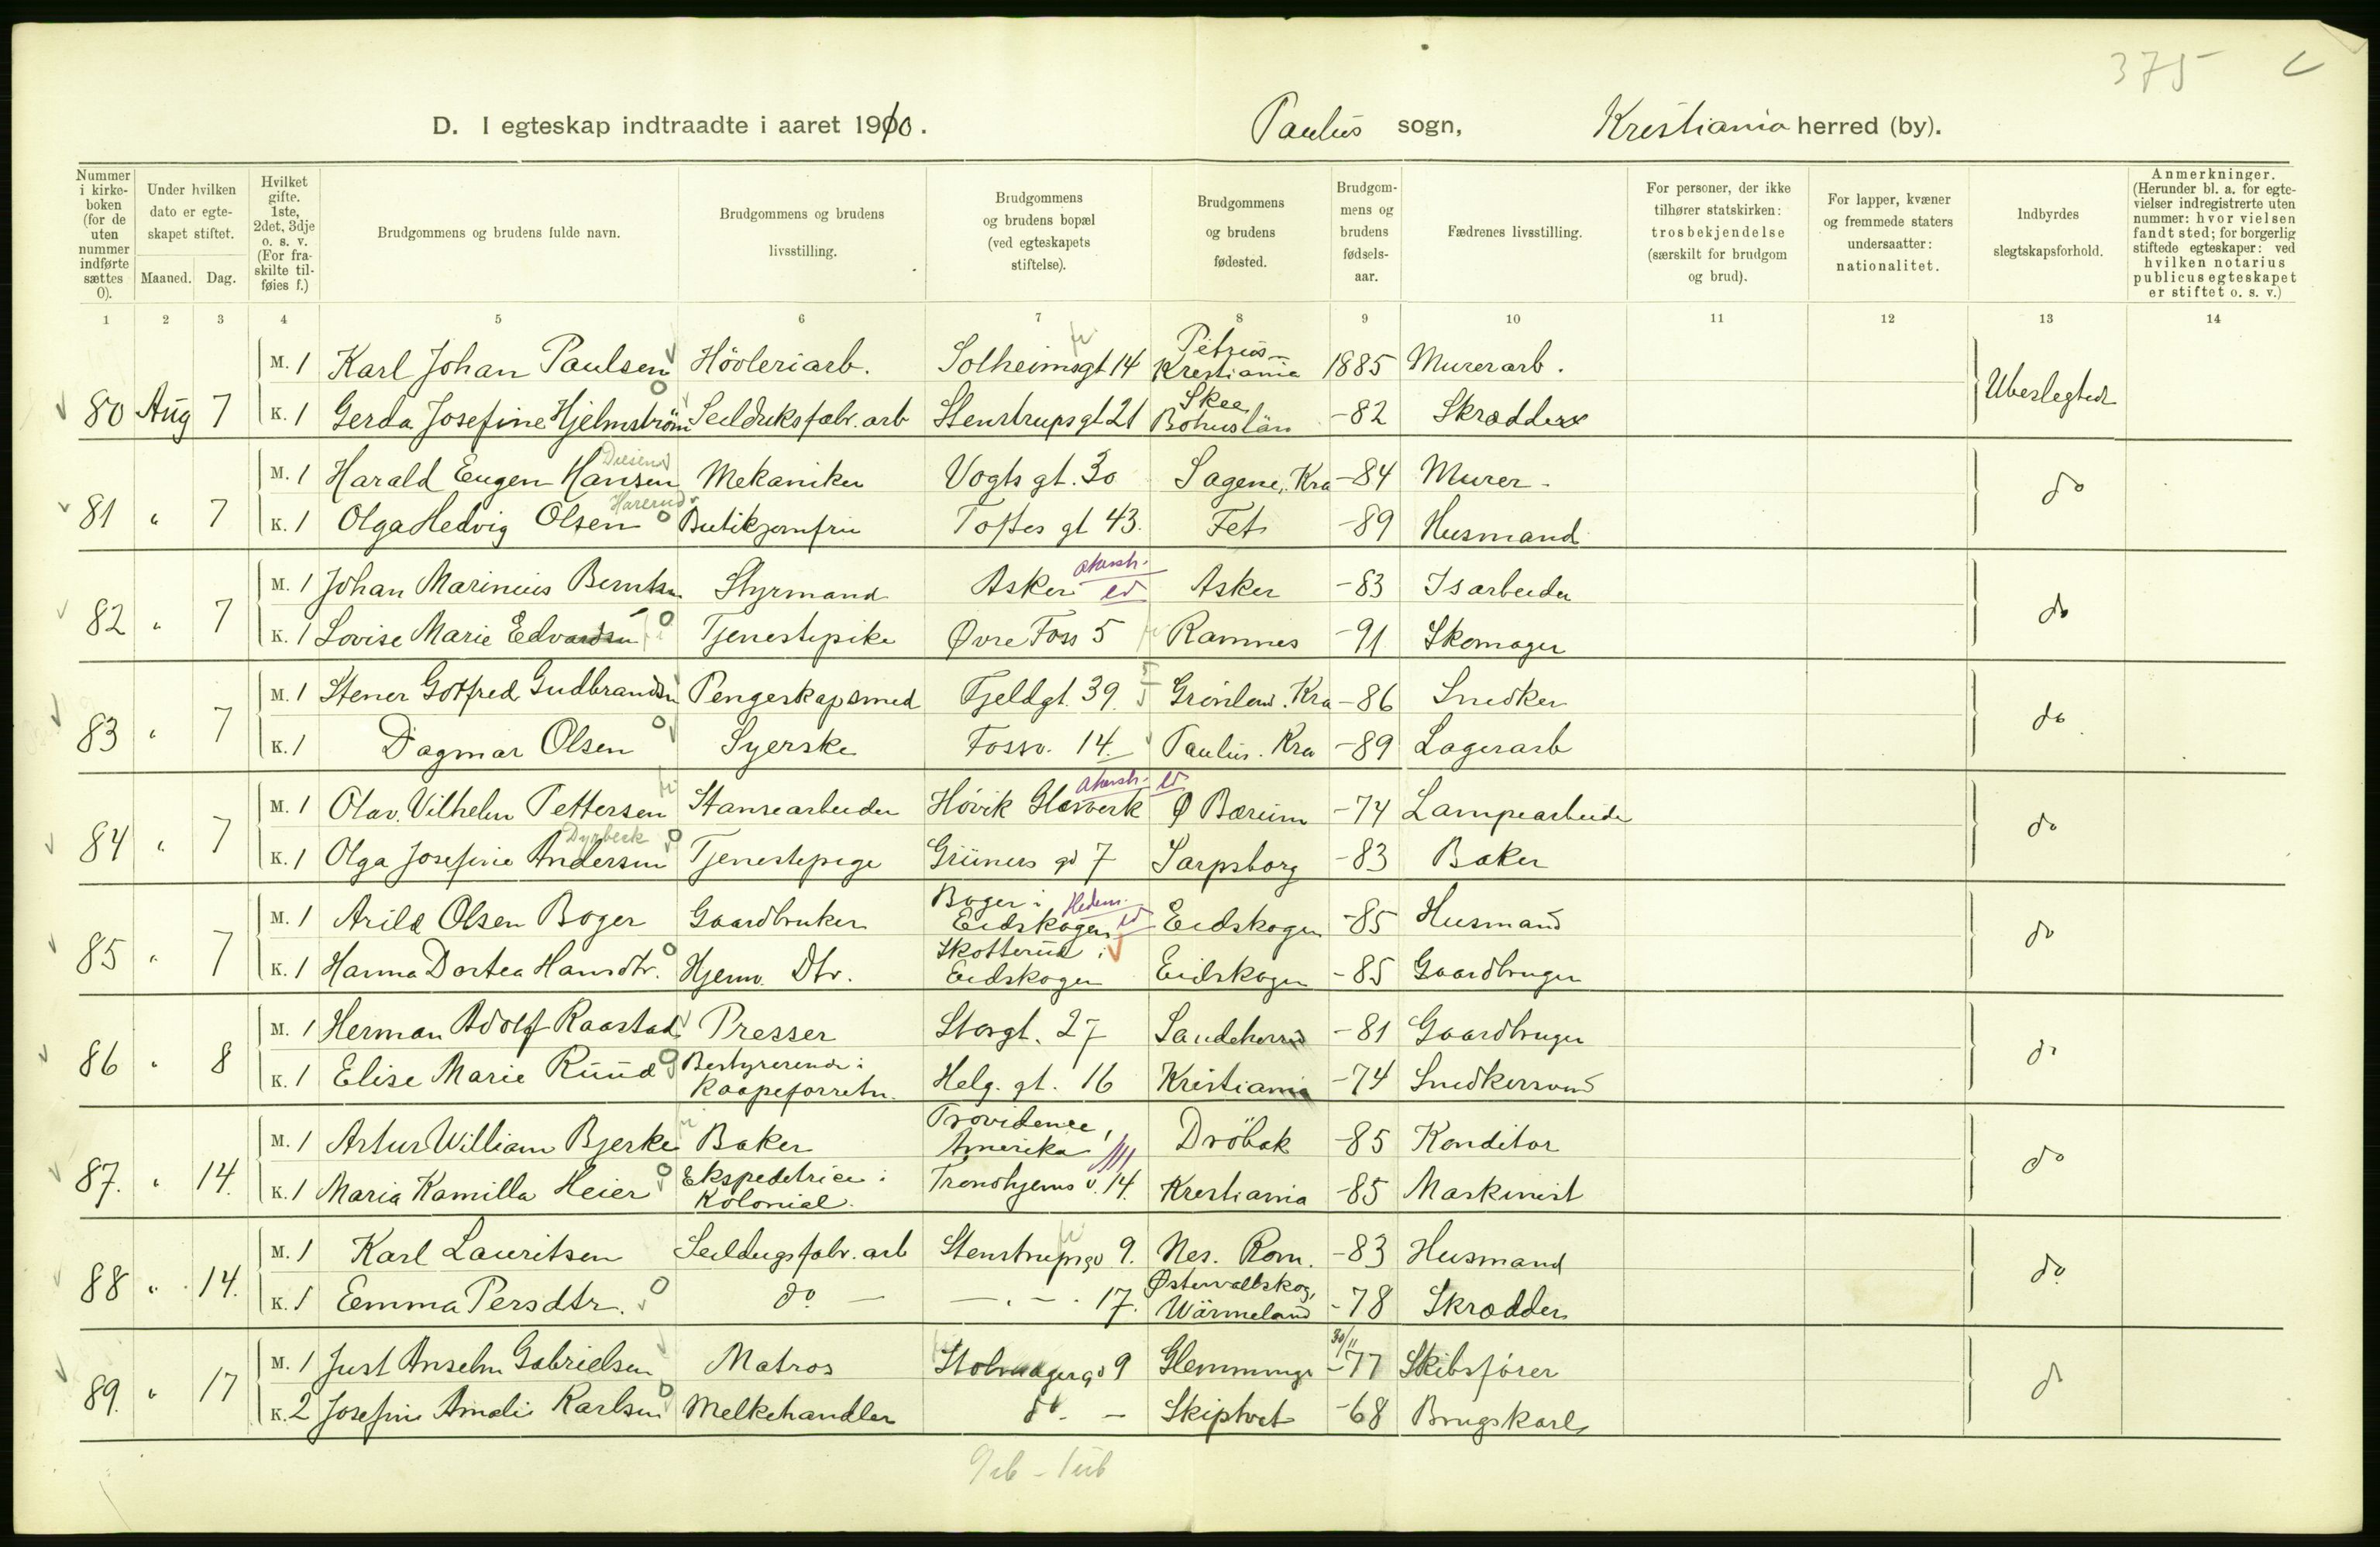 375
D. I egteskap indtraadte i aaret 1910. Paulus sogn, Kristiania herred (by).
Nummer i kirke-boken (for de uten nummer indførte sættes 0).
Under hvilken dato er egte-skapet stiftet.
Maaned. Dag.
Hvilket gifte. 1ste, 2det, 3dje o. s. v. (For fra-skilte til-føies f.)
Brudgommens og brudens fulde navn.
Brudgommens og brudens livsstilling.
Brudgommens og brudens bopæl (ved egteskapets stiftelse).
Brudgommens og brudens fødested.
Brudgom-mens og brudens fødsels-aar.
Fædrenes livsstilling.
For personer, der ikke tilhører statskirken: trosbekjendelse (særskilt for brudgom og brud).
For lapper, kvæner og fremmede staters undersaatter: nationalitet.
Indbyrdes slegtskapsforhold.
Anmerkninger. (Herunder bl. a. for egte-vielser indregistrerte uten nummer: hvor vielsen fandt sted; for borgerlig stiftede egteskaper: ved hvilken notarius publicus egteskapet er stiftet o. s. v.)
1 2 3 4 5 6 7 8 9 10 11 12 13 14
M. 1 Karl Johan Paulsen Hövleriarb. Solheimsgt 14 Petrus Kristiania 1885 Murerarb. Ubeslegtet
80 Aug 7 K. 1 Gerda Josefine Hjelmström Seilduksfabr. arb Stenstrupsgt 21 Skee Bohuslän -82 Skrædder
M. 1 Harald Eugen Hansen Mekaniker Vogts gt. 30 Sagene, Kra -84 Murer do
81 " 7 K. 1 Olga Hedvig Olsen Butikjomfru Toftes gt 43. Fet -89 Husmand
M. 1 Johan Marinius Berntsen Styrmand Asker Akersh. Asker -83 Isarbeider do
82 " 7 K. 1 Lovise Marie Edvardsen Tjenestepike Øvre Foss 5 Ramnes -91 Skomager
M. 1 Stener Gotfred Gudbrandsen Pengeskapsmed Fjeldgt. 39. Grønland. Kra -86 Snedker do
83 " 7 K. 1 Dagmar Olsen Syerske Fossv. 14. Paulus. Kra -89 Lagerarb
M. 1 Olav. Vilhelm Pettersen Stansearbeider Hövik Glasverk Akersh. Ø Bærum -74 Lampearbeider do
84 " 7 K. 1 Olga Josefine Andersen Dyrbeck Tjenestepige Grüners gd 7 Sarpsborg -83 Baker
M. 1 Arild Olsen Boger Gaardbruker Boger i Eidskogen Hedem. Eidskogen -85 Husmand do
85 " 7 K. 1 Hanna Dortea Hansdtr. Hjemv. Dtr. Skotterud i Eidskogen Eidskogen -85 Gaardbruger
M. 1 Herman Adolf Raastad Presser Storgt. 27 Sandeherred -81 Gaardbruger do
86 " 8 K. 1 Elise Marie Ruud Bestyrerende i Kaapeforretn. Helg. gt. 16 Kristiania -74 Snedkersvend
M. 1 Artur William Bjerke Baker Providence, Amerika Dröbak -85 Konditor do
87. " 14. K. 1 Maria Kamilla Heier Ekspeditrice i Kolonial. Trondhjems v. 14. Kristiania -85 Maskinist
M. 1 Karl Lauritsen Seildugsfabr. arb Stenstrupsgd 9. Nes. Rom. -83 Husmand do
88 " 14. K. 1 Emma Persdtr. do — — " — 17. Østervallskog, Wärmeland -78 Skrædder
M. 1 Just Anselm Gabrielsen Matros Stolmagergd 9 Glemminge 30/11 -77 Skibsfører do
89. " 17 K. 2 Josefine Amalie Karlsen Melkehandler do — Skiptvet -68 Brugskarl